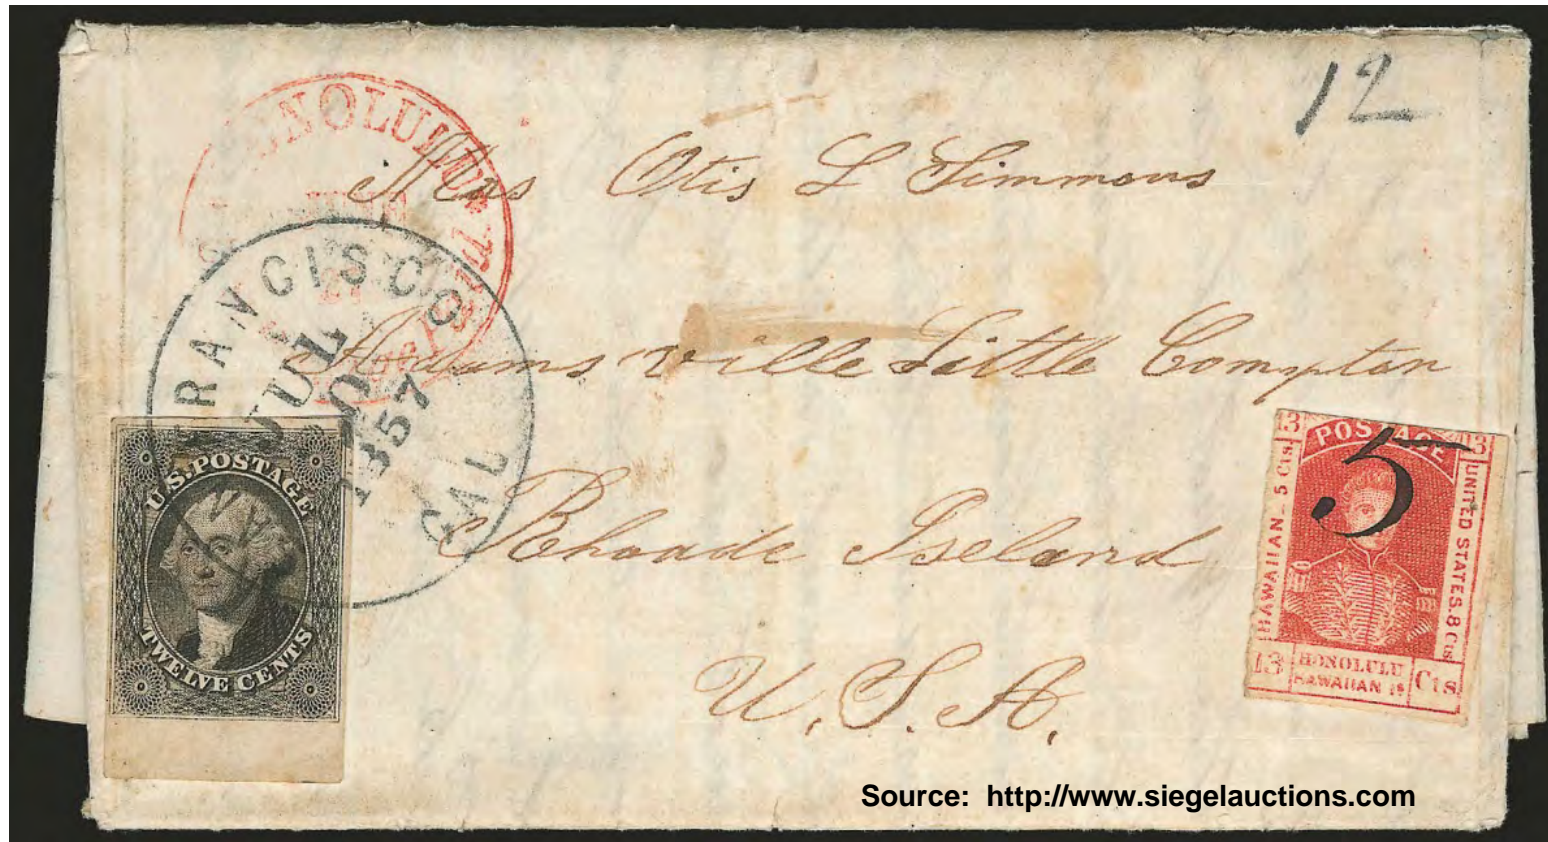 12
HONOLULU
U.S. Postage Paid
FRANCISCO
JUL
20
1857
CAL
Otis L Simmons
Adamsville Little Compton
Rhoade Iseland
U.S.A.
U.S. POSTAGE
TWELVE CENTS
13 POSTAGE 13
5
HAWAIIAN_5 Cts
UNITED STATES.8 Cts
13 HONOLULU Cts.
HAWAIIAN Is
Source: http://www.siegelauctions.com